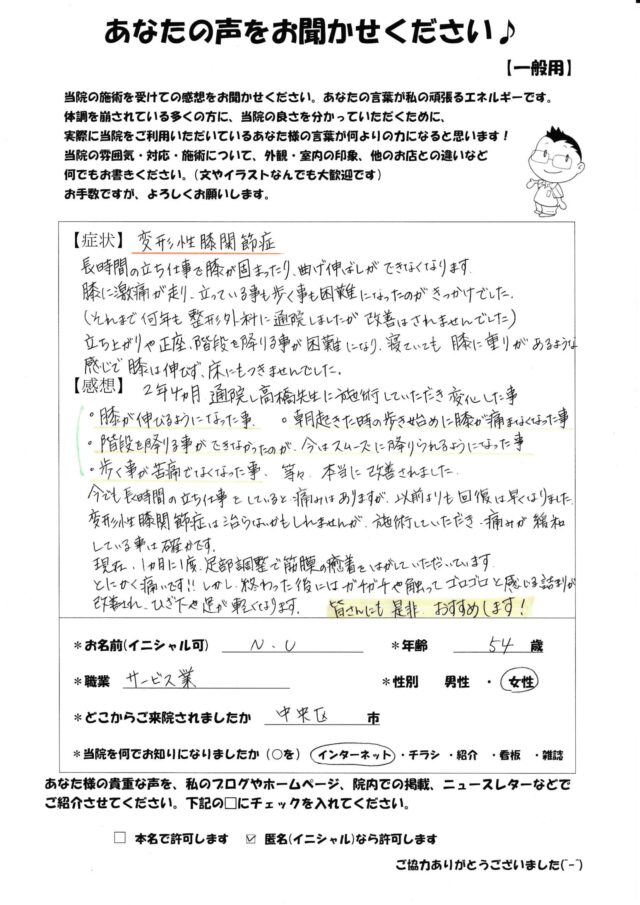 あなたの声をお聞かせください♪
【一般用】
当院の施術を受けての感想をお聞かせください。あなたの言葉が私の頑張るエネルギーです。
体調を崩されている多くの方に、当院の良さを分かっていただくために、
実際に当院をご利用いただいているあなた様の言葉が何よりの力になると思います！
当院の雰囲気・対応・施術について、外観・室内の印象、他のお店との違いなど
何でもお書きください。(文やイラストなんでも大歓迎です)
お手数ですが、よろしくお願いします。
【症状】変形性膝関節症
長時間の立ち仕事で膝が固まったり、曲げ伸ばしができなくなります。
膝に激痛が走り、立っている事も歩く事も困難になったのがきっかけでした。
(それまで何年も整形外科に通院しましたが改善はされませんでした)
立ち上がりや正座、階段を降りる事が困難になり、寝ていても膝に重りがあるような
感じで膝は伸びず、床にもつきませんでした。
【感想】2年4カ月通院し高橋先生に施術していただき変化した事
・膝が伸びるようになった事 ・朝起きた時の歩き始めに膝が痛まなくなった事
・階段を降りる事ができなかったのが、今はスムーズに降りられるようになった事
・歩く事が苦痛でなくなった事、等々、本当に改善されました。
今でも長時間の立ち仕事をしていると痛みはありますが、以前よりも回復は早くなりました。
変形性膝関節症は治らないかもしれませんが、施術していただき、痛みが緩和
している事は確かです。
現在、1カ月に1度、足部調整で筋膜の癒着をはがしていただいています。
とにかく痛いです!!しかし、終わった後にはガチガチや触ってゴロゴロと感じる詰まりが
改善され、ひざ下や足が軽くなります。 皆さんにも是非、おすすめします！
＊お名前(イニシャル可) N.U ＊年齢 54 歳
＊職業 サービス業 ＊性別 男性 ・ 女性
＊どこからご来院されましたか 中央区 市
＊当院を何でお知りになりましたか（○を） インターネット ・チラシ ・紹介 ・看板 ・雑誌
あなた様の貴重な声を、私のブログやホームページ、院内での掲載、ニュースレターなどで
ご紹介させてください。下記の□にチェックを入れてください。
□ 本名で許可します ☑ 匿名(イニシャル)なら許可します
ご協力ありがとうございました(^-^)